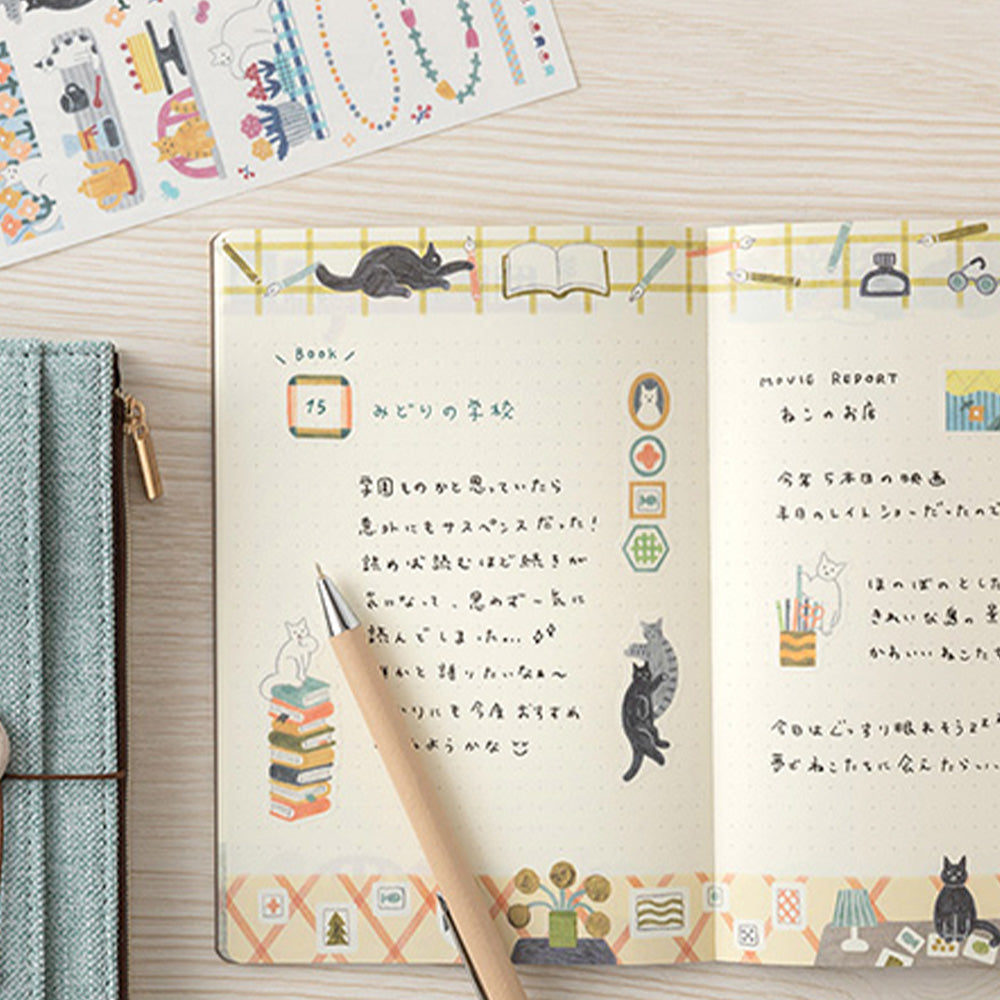 Book
15
みどりの学校
学園ものかと思っていたら
意外にもサスペンスだった!
読めば読むほど続きが
気になって、思わず一気に
読んでしまった...
かと語りたいなぁ〜
りにも今度おすすめ
ようかな
MOVIE REPORT
ねこのお店
今年5本目の映画
本日のレイトショーだったので
ほのぼのとした
きれいな島の
かわいいねこたち
今日はぐっすり眠れそうzzz
夢でねこたちに会えたらいい